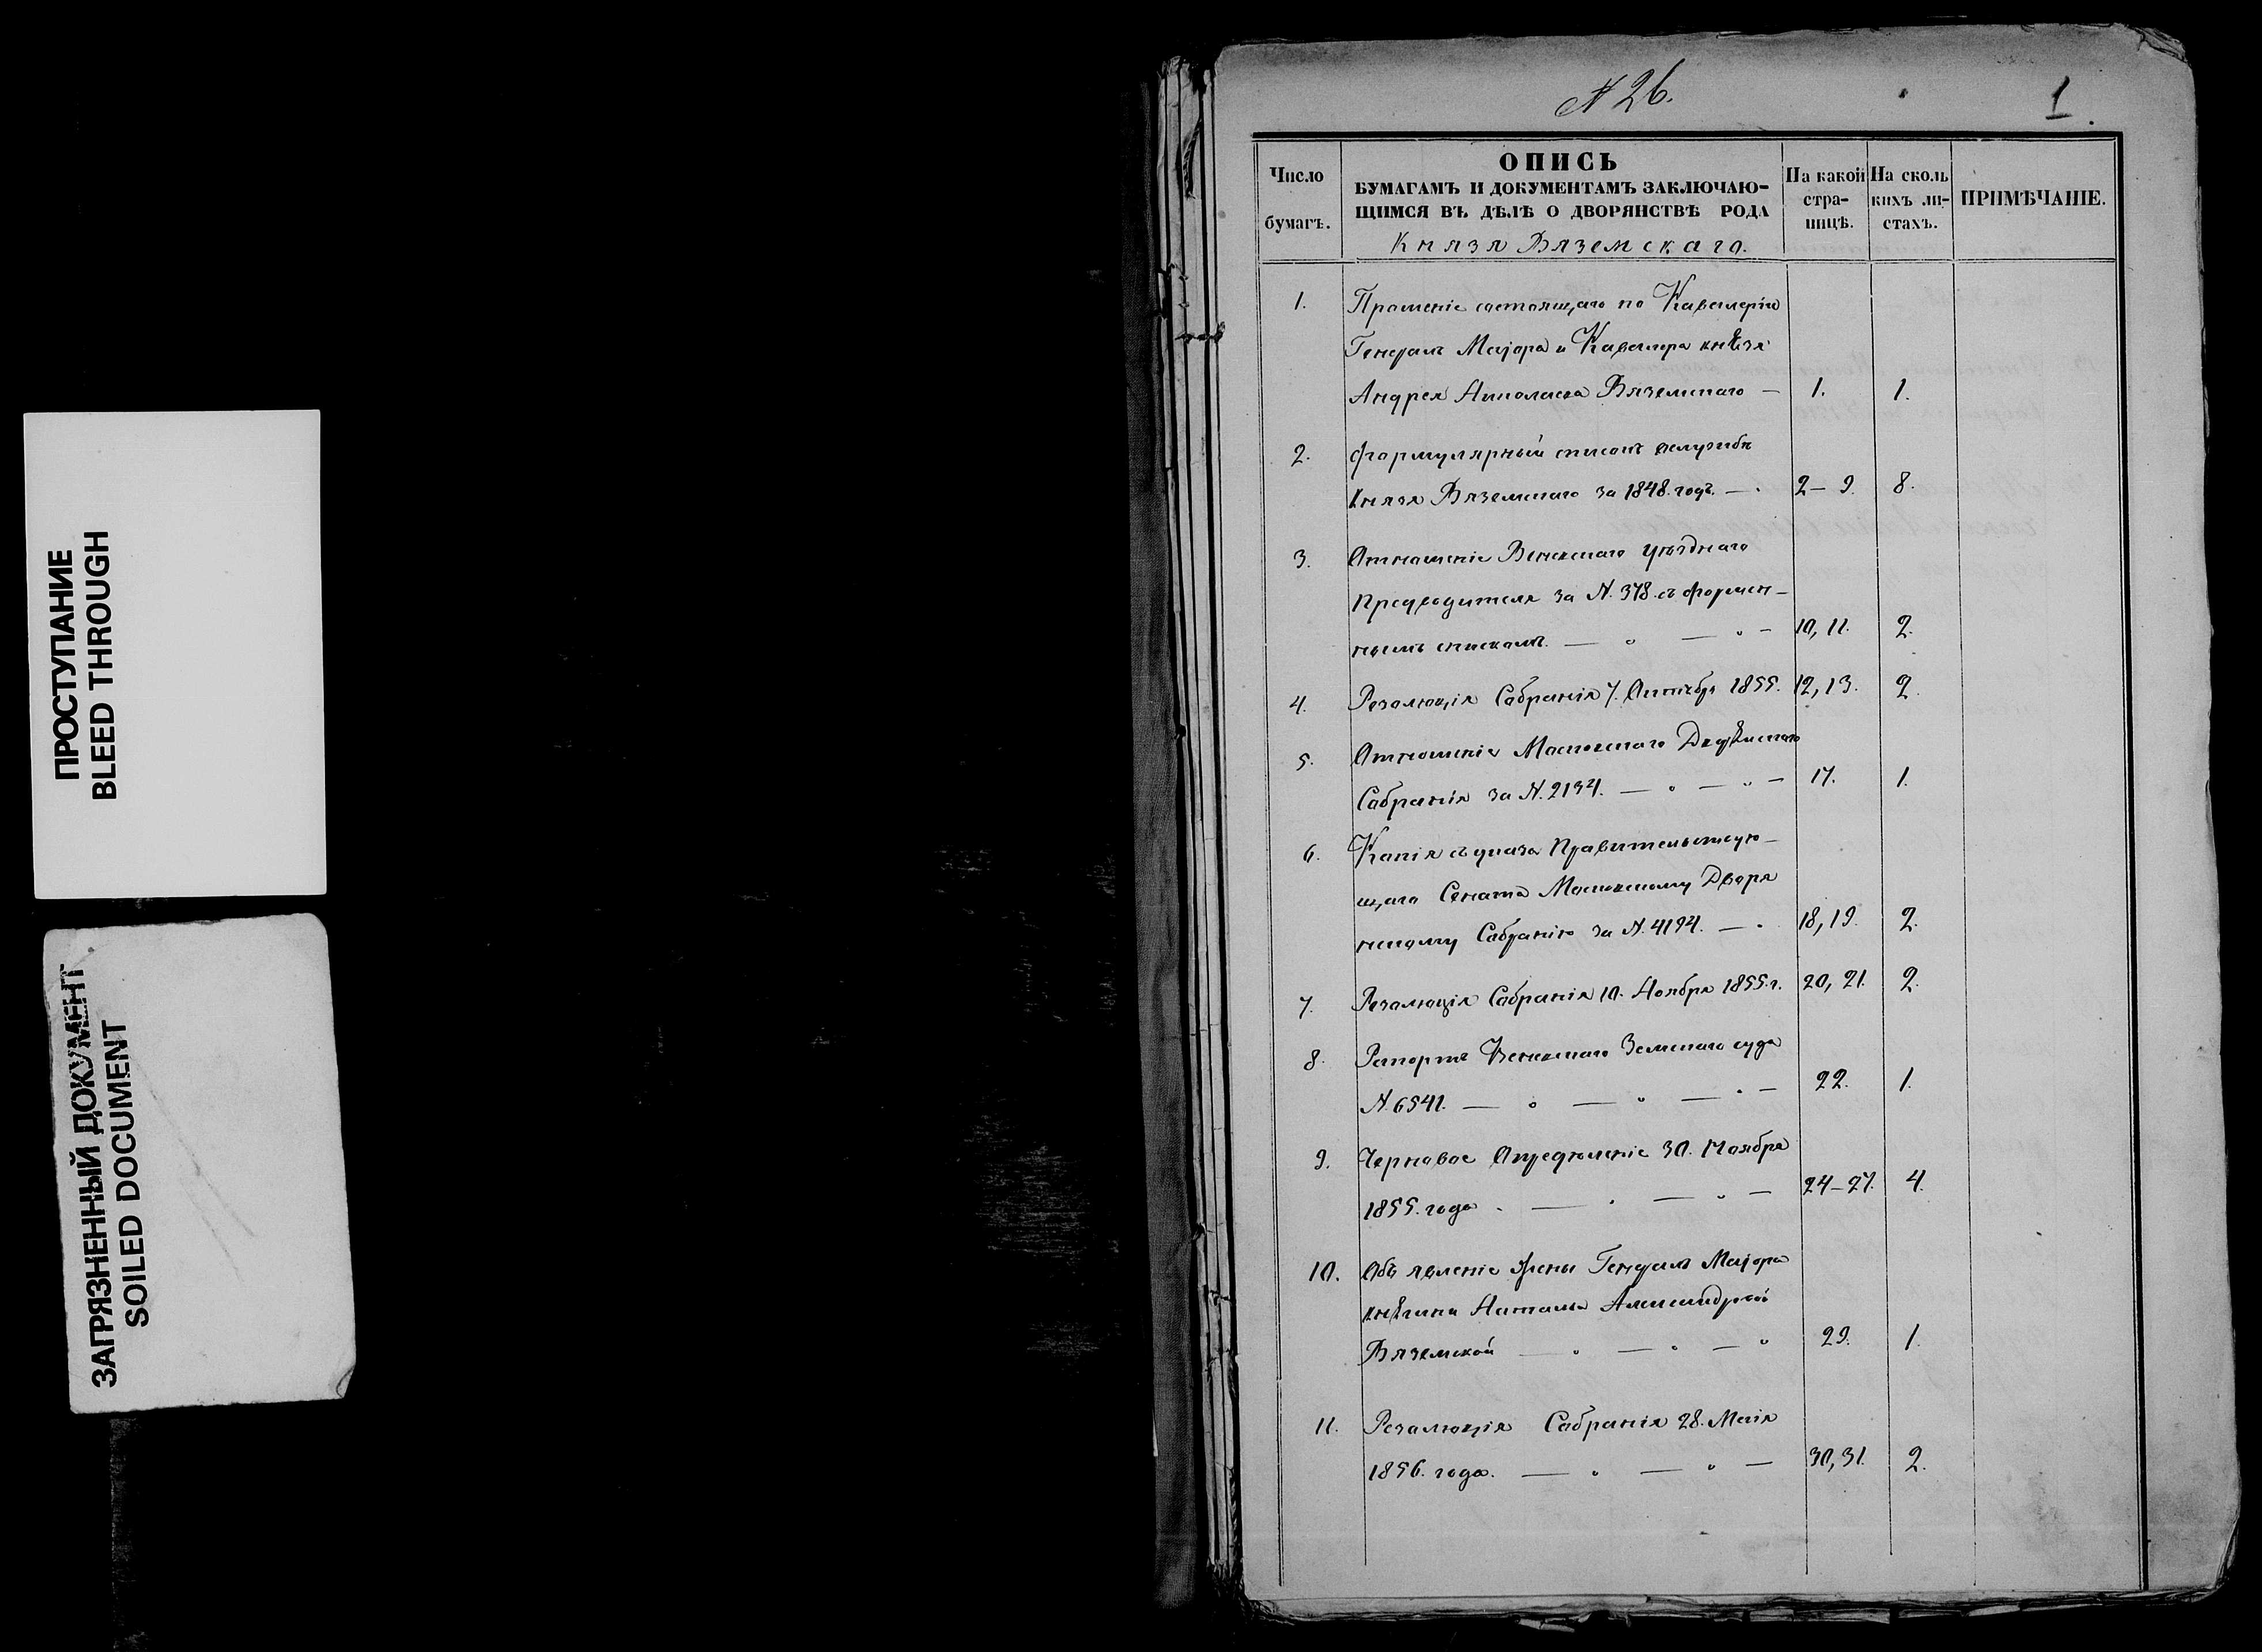 ПРОСТУПАНИЕ
BLEED THROUGH
ЗАГРЯЗНЕННЫЙ ДОКУМЕНТ
SOILED DOCUMENT
N 26.
1.
Число бумагъ.
ОПИСЬ
БУМАГАМЪ И ДОКУМЕНТАМЪ ЗАКЛЮЧАЮ-
ЩИМСЯ ВЪ ДѢЛѢ О ДВОРЯНСТВѢ РОДА
Князя Вяземскаго.
На какой стра- ницѣ.
На сколь кихъ ли- стахъ.
ПРИМѢЧАНІЕ.
1. Прошеніе состоящаго по Кавалеріи
Генералъ Маіора и Кавалера князя
Андрея Николаева Вяземскаго — 1. 1.
2. Формулярный списокъ о службѣ
Князя Вяземскаго за 1848. годъ. — 2–9. 8.
3. Отношеніе Веневскаго уѣзднаго
Предводителя за N. 378. съ формен-
нымъ спискомъ. — 10, 11. 2.
4. Резолюція Собранія 7. Октября 1855. 12, 13. 2.
5. Отношеніе Московскаго Двор̃нскаго
Собранія за N. 2134. — 17. 1.
6. Копія съ указа Правительствую-
щаго Сената Московскому Дворя
нскому Собранію за N. 4194. — 18, 19. 2.
7. Резолюція Собранія 10. Ноября 1855. г. 20, 21. 2.
8. Рапортъ Веневскаго Земскаго суда
N. 6541. — 22. 1.
9. Черновое Опредѣленіе 30. Ноября
1855. года. — 24–27. 4.
10. Объявленіе жены Генералъ Маіора
княгини Натальи Александровой
Вяземской — 29. 1.
11. Резолюція Собранія 28. Маія
1856. года. — 30, 31. 2.